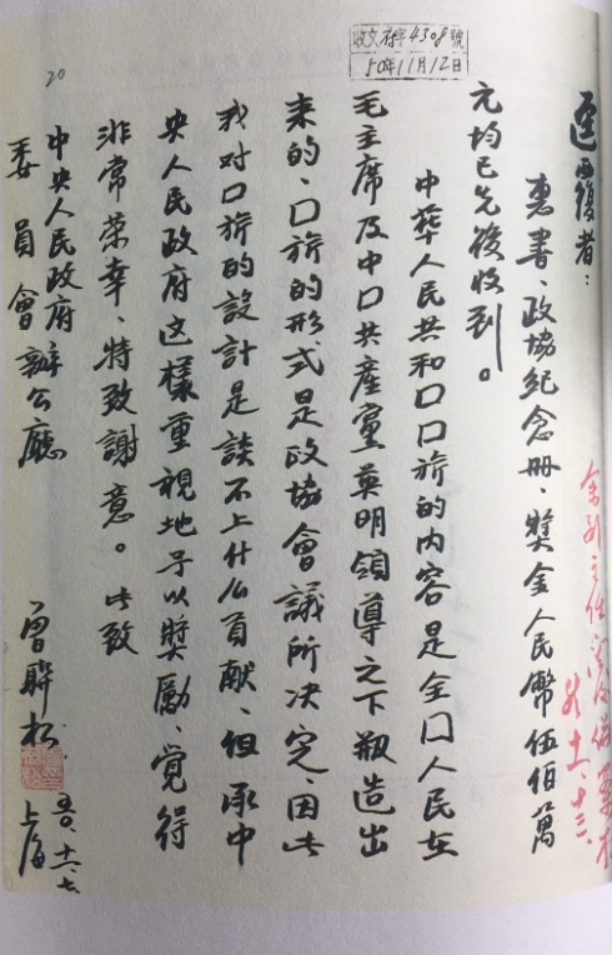 收文府字4308號
50年11月12日
20
逕覆者：
惠書、政協紀念冊、獎金人民幣伍佰萬
元均已先後收到。
中华人民共和囗囗旂的内容是全囗人民在
毛主席及中囗共產黨英明領導之下剏造出
来的、囗旂的形式是政協會議所决定、因此
我对囗旂的設計是談不上什么貢献、但承中
央人民政府这樣重視地予以獎勵、覚得
非常荣幸、特致謝意。此致
中央人民政府
委員會辦公廳
曾聯松
五〇、十一、七
上海
余副主任
十一、十三、